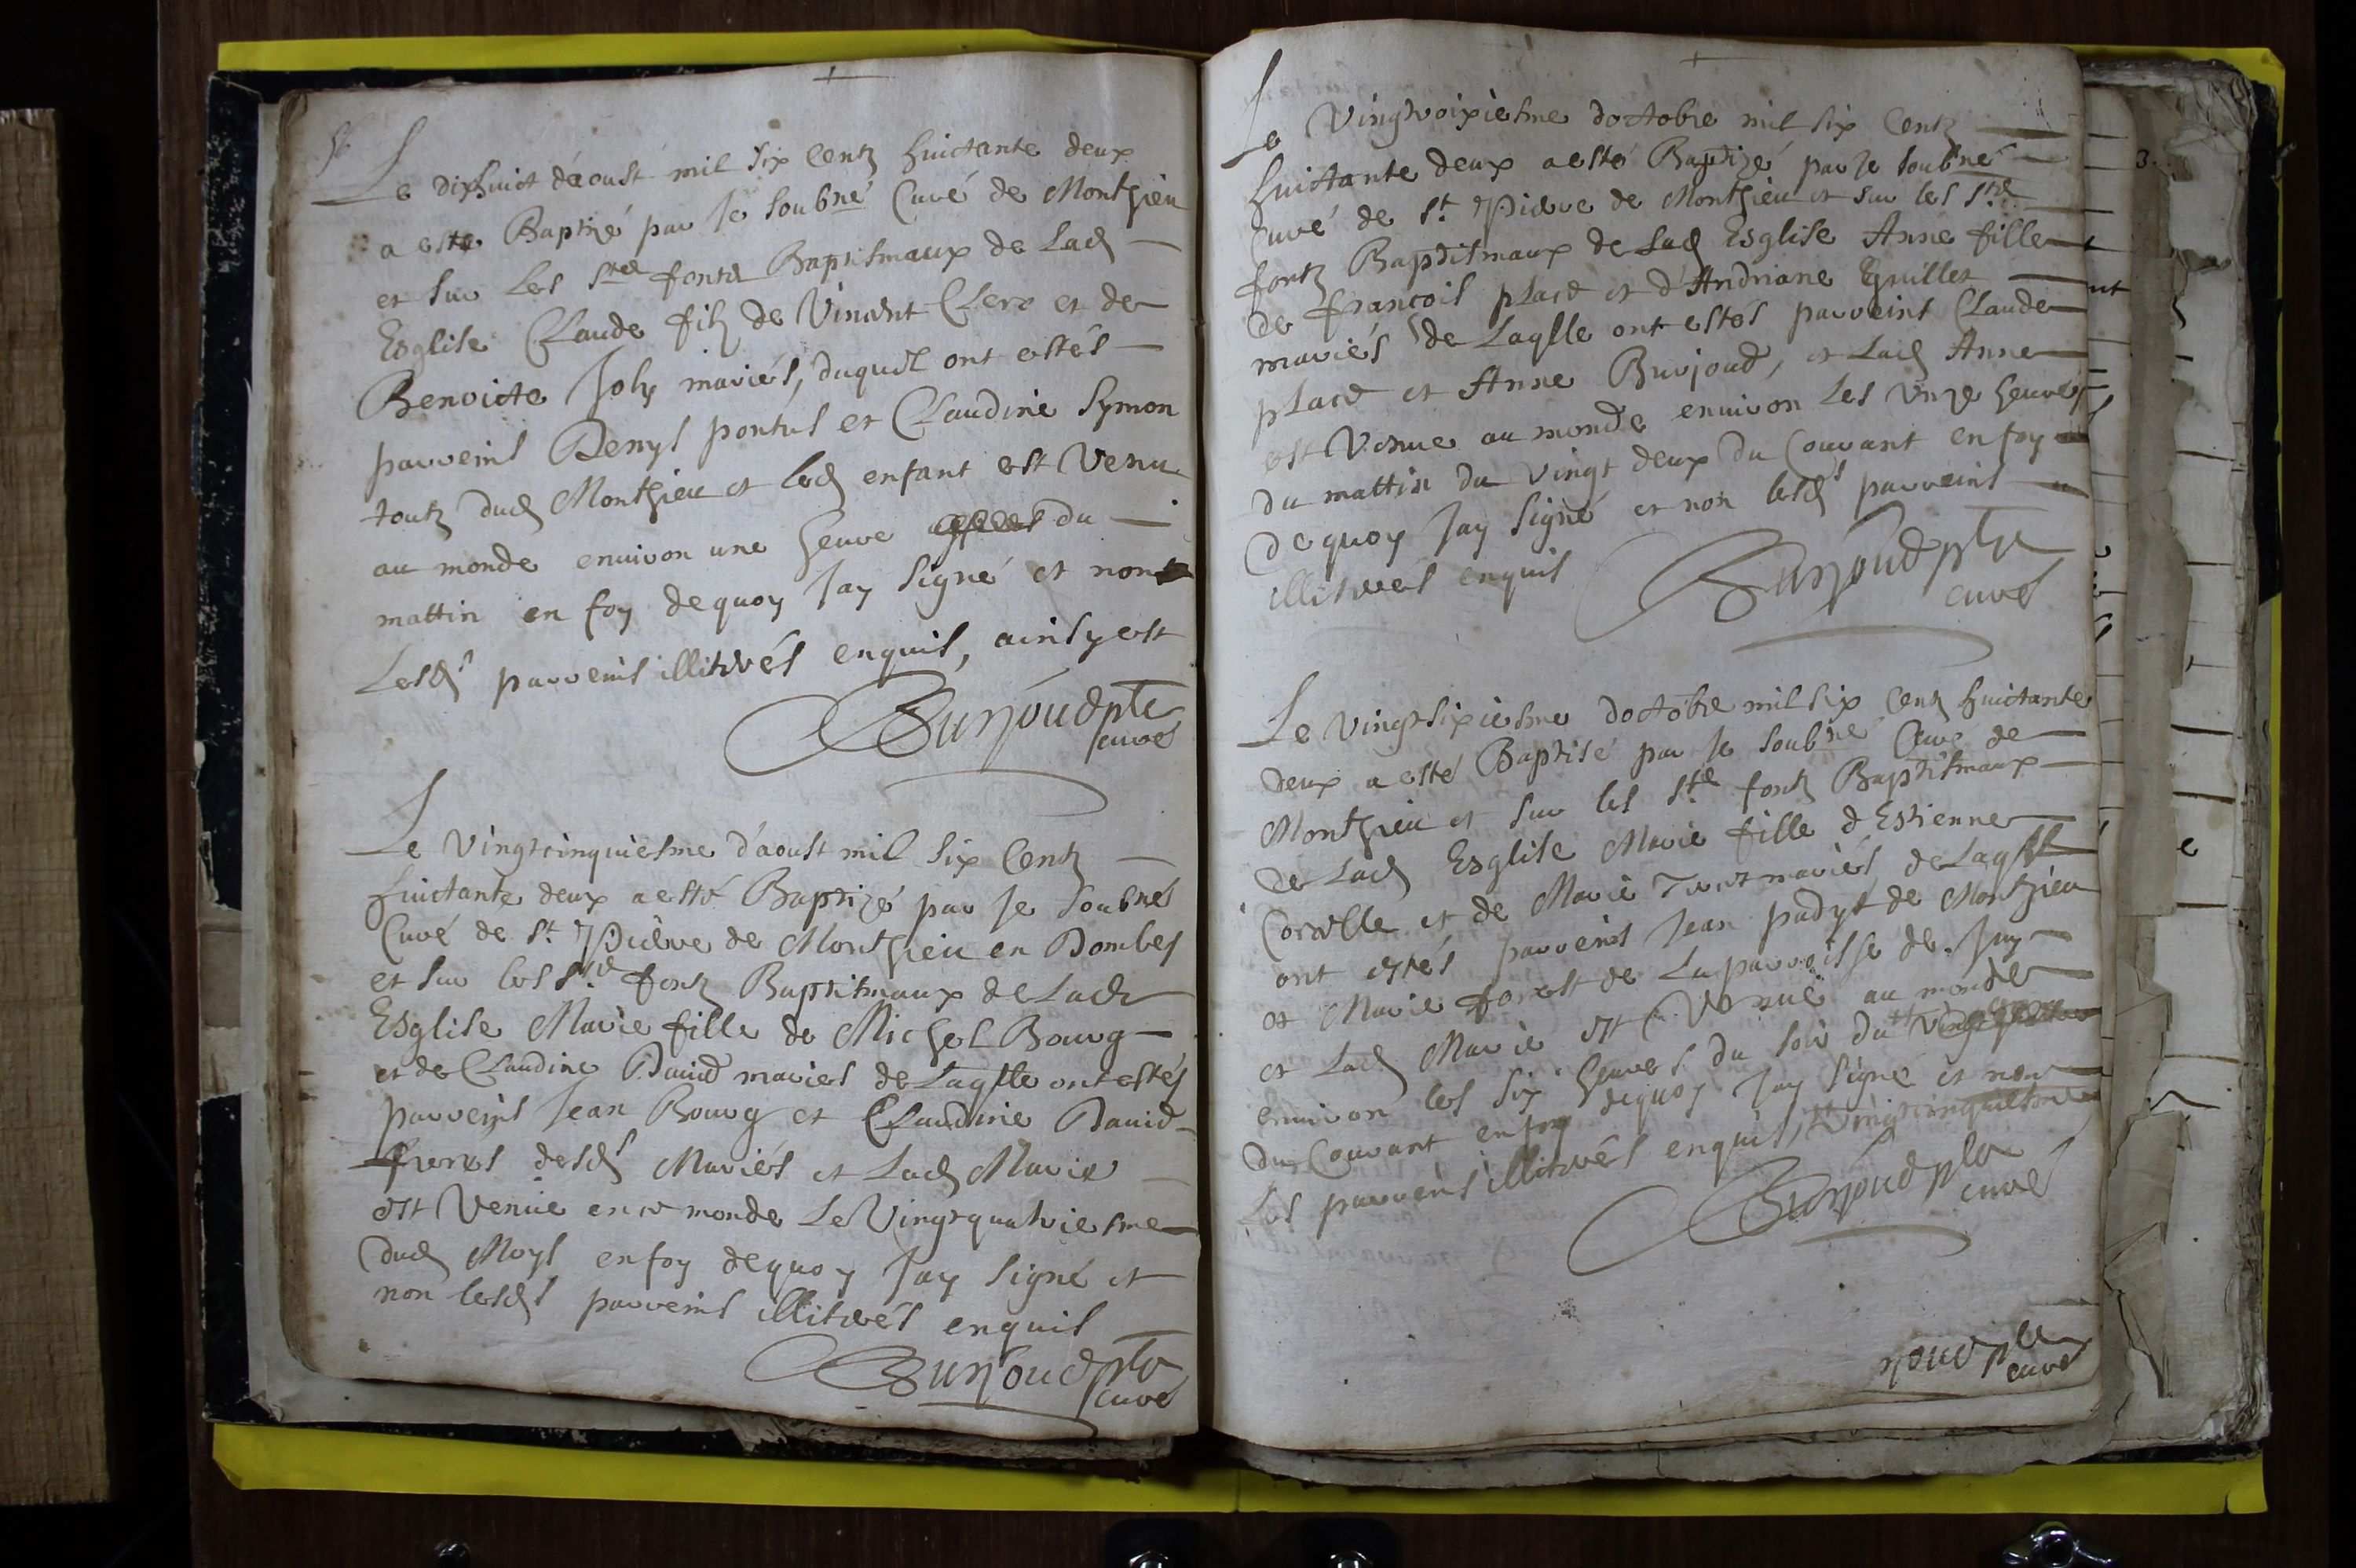 56
Le dixhuict d'aoust mil six Centz huictante deux
a esté Baptizé par Je soubné Curé de Monthieu
et sur les Stes fontz Baptismaux de Lad
Esglise Claude filz de Vincent Clerc et de
Benoicte Joly mariés, duquil ont estés
parreins Denys pontus et Claudine Symon
toutz dud Monthieu et led enfant est Venu
au monde environ une heure du
mattin en foy dequoy Jay signé et non
Lesds parreins illitrés enquis, ainsy est
Burjoud ptre
curé
Le Vingtcinquiesme d'aoust mil six Centz
huictante deux a esté Baptizé par Je soubnés
Curé de St Pierre de Monthieu en Dombes
et sur les Ste fontz Baptismaux de Lade
Esglise Marie fille de Michel Bourg
et de Claudine David mariés de Laqlle ont estés
parreins Jean Bourg et Claudine David
freres desds Mariés et Lad Marie
est Venue en ce monde Le Vingtquatriesme
dud Moys en foy dequoy Jay signé et
non lesds parreins illitrés enquis
Burjoud ptre
curé
Le Vingtroixiesme doctobre mil six Centz
huittante deux a esté Baptizé par Je soubné
Curé de St Pierre de Monthieu et sur les Ste
fontz Baptismaux de Lad Esglise Anne fille
de françois place et d'Andriane
mariés de Laqlle ont estés parreins Claude
place et Anne Burjoud, et Lad Anne
est Venue au monde environ Les Unze heures
du mattin du Vingt deux du Courant en foy
dequoy Jay signé et non lesds parreins
illitrés enquis
Burjoud ptre
curé
Le Vingtsixiesme doctobre mil six Centz huictante
deux a esté Baptisé par Je soubné Curé de
Monthieu et sur les Ste fontz Baptismaux
de Lad Esglise Marie fille d'Estienne
et de Marie mariés, de Laqlle
ont estés parreins Jean de Monthieu
et Marie forest de La parroisse de
et Lad Marie est Venuë au monde
environ les six heures du soir du
du Courant en foy dequoy Jay signé et non
Les parreins illitrés enquis, Vingtcinquiesme
Burjoud ptre
curé
rjoud ptre
curé